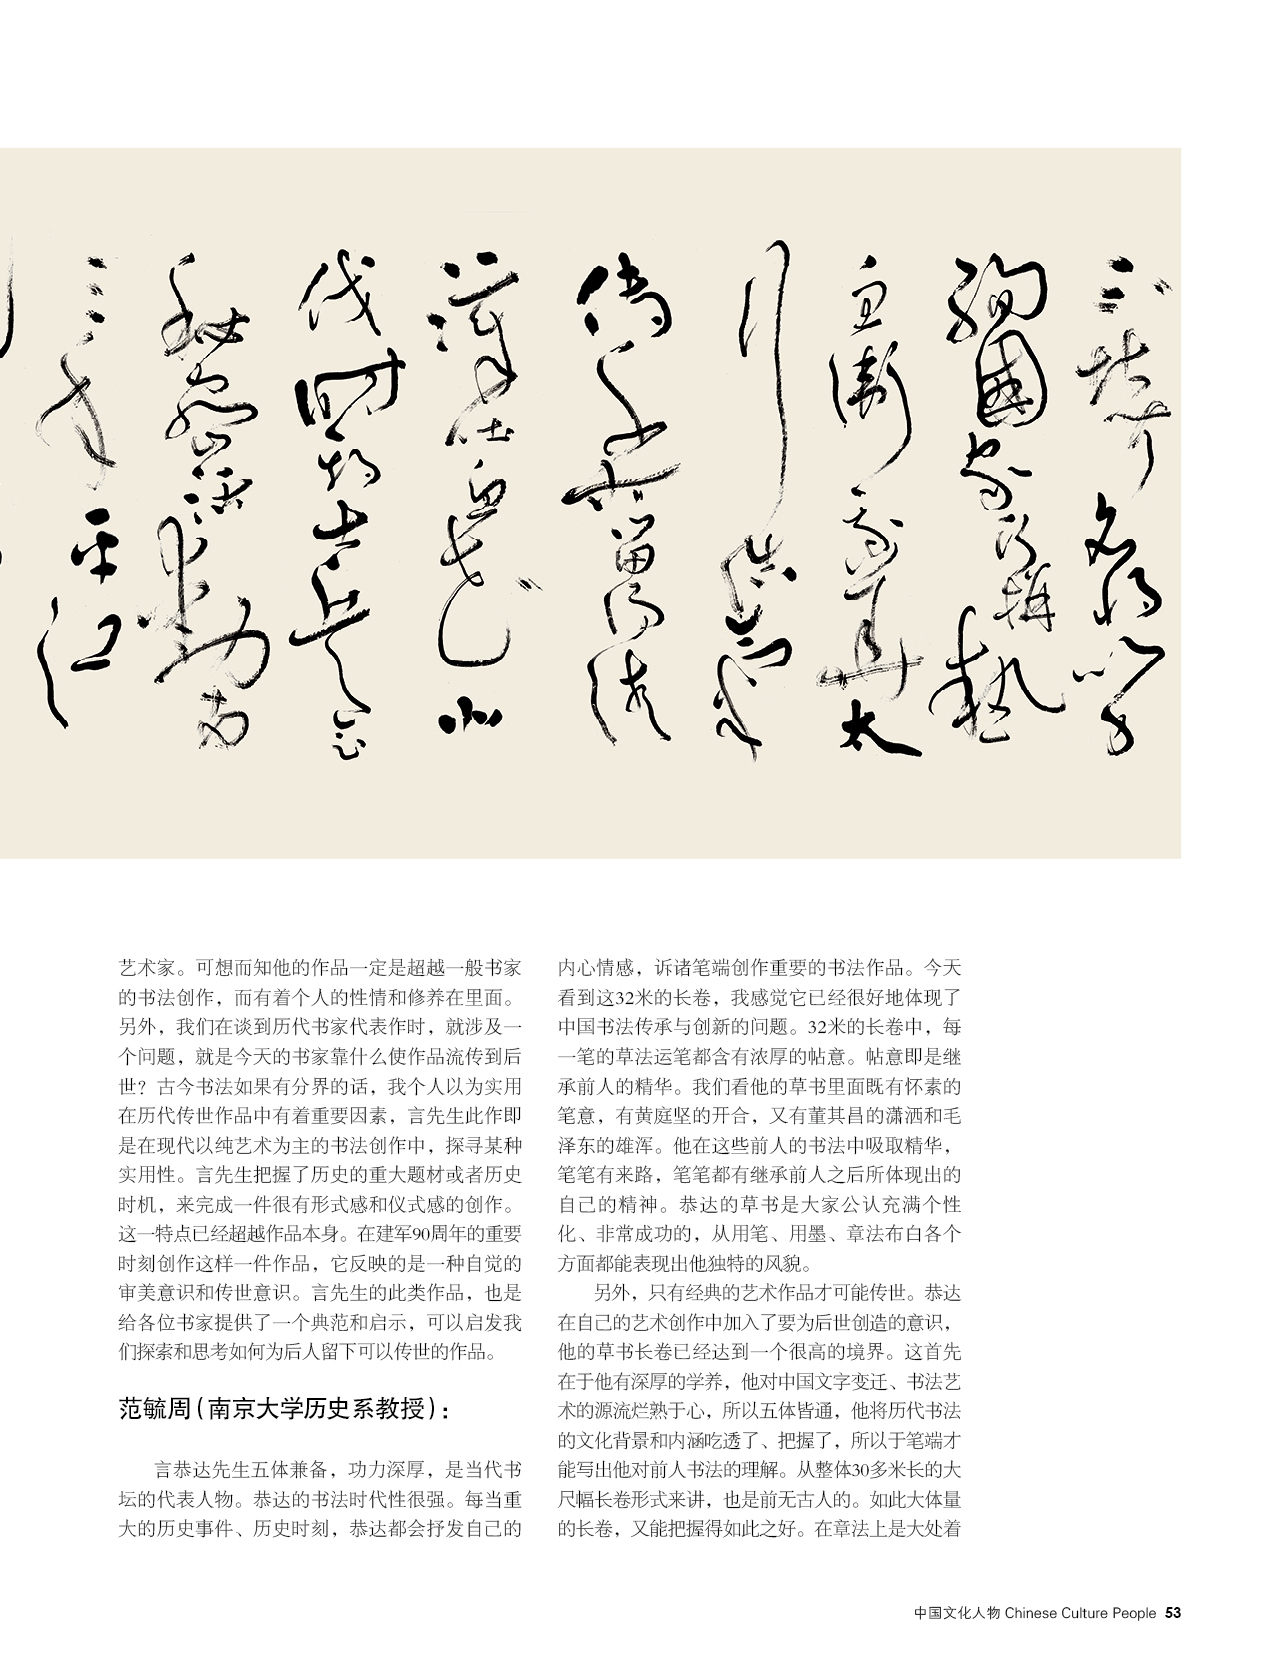 艺术家。可想而知他的作品一定是超越一般书家
的书法创作，而有着个人的性情和修养在里面。
另外，我们在谈到历代书家代表作时，就涉及一
个问题，就是今天的书家靠什么使作品流传到后
世？古今书法如果有分界的话，我个人以为实用
在历代传世作品中有着重要因素，言先生此作即
是在现代以纯艺术为主的书法创作中，探寻某种
实用性。言先生把握了历史的重大题材或者历史
时机，来完成一件很有形式感和仪式感的创作。
这一特点已经超越作品本身。在建军90周年的重要
时刻创作这样一件作品，它反映的是一种自觉的
审美意识和传世意识。言先生的此类作品，也是
给各位书家提供了一个典范和启示，可以启发我
们探索和思考如何为后人留下可以传世的作品。
范毓周（南京大学历史系教授）：
言恭达先生五体兼备，功力深厚，是当代书
坛的代表人物。恭达的书法时代性很强。每当重
大的历史事件、历史时刻，恭达都会抒发自己的
内心情感，诉诸笔端创作重要的书法作品。今天
看到这32米的长卷，我感觉它已经很好地体现了
中国书法传承与创新的问题。32米的长卷中，每
一笔的草法运笔都含有浓厚的帖意。帖意即是继
承前人的精华。我们看他的草书里面既有怀素的
笔意，有黄庭坚的开合，又有董其昌的潇洒和毛
泽东的雄浑。他在这些前人的书法中吸取精华，
笔笔有来路，笔笔都有继承前人之后所体现出的
自己的精神。恭达的草书是大家公认充满个性
化、非常成功的，从用笔、用墨、章法布白各个
方面都能表现出他独特的风貌。
另外，只有经典的艺术作品才可能传世。恭达
在自己的艺术创作中加入了要为后世创造的意识，
他的草书长卷已经达到一个很高的境界。这首先
在于他有深厚的学养，他对中国文字变迁、书法艺
术的源流烂熟于心，所以五体皆通，他将历代书法
的文化背景和内涵吃透了、把握了，所以于笔端才
能写出他对前人书法的理解。从整体30多米长的大
尺幅长卷形式来讲，也是前无古人的。如此大体量
的长卷，又能把握得如此之好。在章法上是大处着
中国文化人物 Chinese Culture People 53